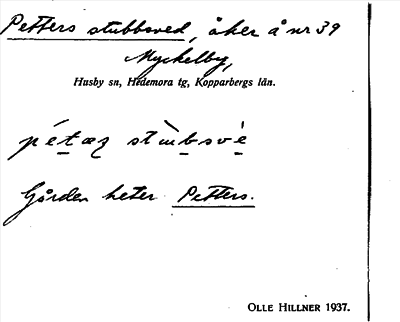 Petters stubbsved, åker å nr 39
Myckelby,
Husby sn, Hedemora tg, Kopparbergs län.
Gården heter Petters.
OLLE HILLNER 1937.